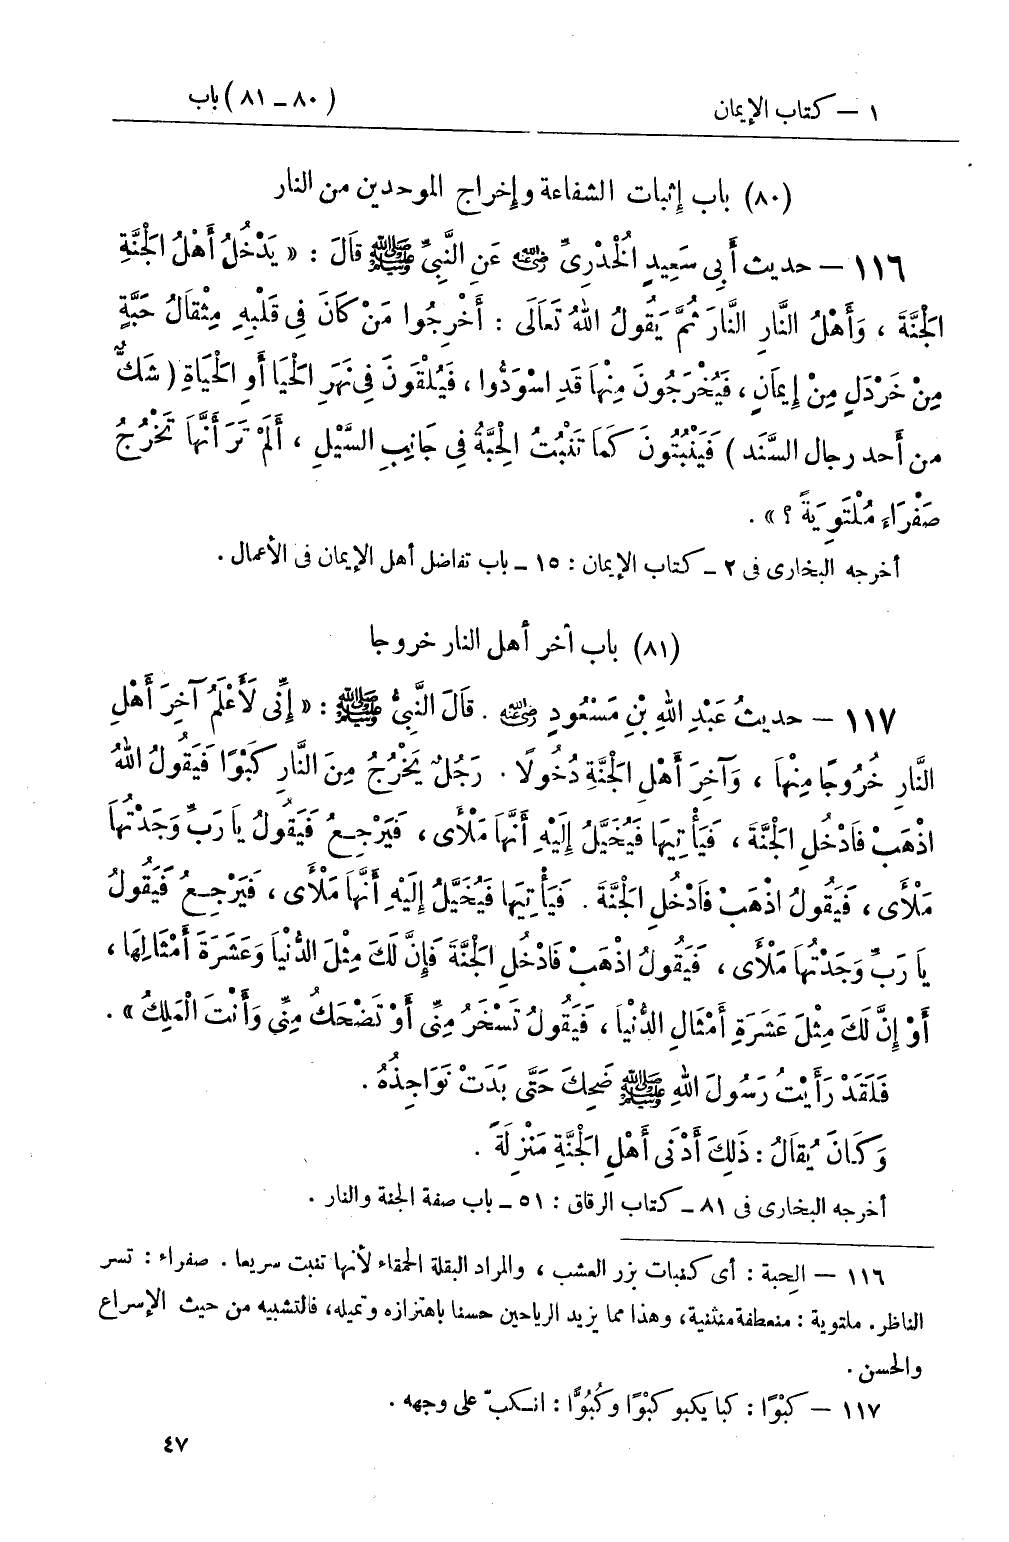 ١ – كتاب الإيمان (٨٠ – ٨١) باب
(٨٠) باب إثبات الشفاعة وإخراج الموحدين من النار
١١٦ – حديث أَبِي سَعِيدٍ الْخُدْرِيِّ ﵁ عَنِ النَّبِيِّ ﷺ قَالَ : « يَدْخُلُ أَهْلُ الْجَنَّةِ
الْجَنَّةَ ، وَأَهْلُ النَّارِ النَّارَ ثُمَّ يَقُولُ اللهُ تَعَالَى : أَخْرِجُوا مَنْ كَانَ فِي قَلْبِهِ مِثْقَالُ حَبَّةٍ
مِنْ خَرْدَلٍ مِنْ إِيمَانٍ ، فَيُخْرَجُونَ مِنْهَا قَدِ اسْوَدُّوا ، فَيُلْقَوْنَ فِي نَهَرِ الْحَيَا أَوِ الْحَيَاةِ ( شَكٌّ
من أَحد رجال السَّنَد ) فَيَنْبُتُونَ كَمَا تَنْبُتُ الْحِبَّةُ فِي جَانِبِ السَّيْلِ ، أَلَمْ تَرَ أَنَّهَا تَخْرُجُ
صَفْرَاءَ مُلْتَوِيَةً ؟ » .
أخرجه البخارى فى ٢ – كتاب الإيمان : ١٥ – باب تفاضل أهل الإيمان فى الأعمال .
(٨١) باب آخر أهل النار خروجا
١١٧ – حديثُ عَبْدِ اللهِ بْنِ مَسْعُودٍ ﵁ . قَالَ النَّبِيُّ ﷺ : « إِنِّي لَأَعْلَمُ آخِرَ أَهْلِ
النَّارِ خُرُوجًا مِنْهَا ، وَآخِرَ أَهْلِ الْجَنَّةِ دُخُولًا . رَجُلٌ يَخْرُجُ مِنَ النَّارِ كَبْوًا فَيَقُولُ اللهُ
اذْهَبْ فَادْخُلِ الْجَنَّةَ ، فَيَأْتِيهَا فَيُخَيَّلُ إِلَيْهِ أَنَّهَا مَلْأَى ، فَيَرْجِعُ فَيَقُولُ يَا رَبِّ وَجَدْتُهَا
مَلْأَى ، فَيَقُولُ اذْهَبْ فَادْخُلِ الْجَنَّةَ . فَيَأْتِيهَا فَيُخَيَّلُ إِلَيْهِ أَنَّهَا مَلْأَى ، فَيَرْجِعُ فَيَقُولُ
يَا رَبِّ وَجَدْتُهَا مَلْأَى ، فَيَقُولُ اذْهَبْ فَادْخُلِ الْجَنَّةَ فَإِنَّ لَكَ مِثْلَ الدُّنْيَا وَعَشَرَةَ أَمْثَالِهَا ،
أَوْ إِنَّ لَكَ مِثْلَ عَشَرَةِ أَمْثَالِ الدُّنْيَا ، فَيَقُولُ تَسْخَرُ مِنِّي أَوْ تَضْحَكُ مِنِّي وَأَنْتَ الْمَلِكُ » .
فَلَقَدْ رَأَيْتُ رَسُولَ اللهِ ﷺ ضَحِكَ حَتَّى بَدَتْ نَوَاجِذُهُ .
وَكَانَ يُقَالُ : ذَلِكَ أَدْنَى أَهْلِ الْجَنَّةِ مَنْزِلَةً .
أخرجه البخارى فى ٨١ – كتاب الرقاق : ٥١ – باب صفة الجنة والنار .
١١٦ – الحِبة : أى كنبات بزر العشب ، والمراد البقلة الحمقاء لأنها تنبت سريعا . صفراء : تسر
الناظر . ملتوية : منعطفة منثنية ، وهذا مما يزيد الرياحين حسنا باهتزازه وتميله ، فالتشبيه من حيث الإسراع
والحسن .
١١٧ – كَبْوًا : كبا يكبو كَبْوًا وكُبُوًّا : انكبّ على وجهه .
٤٧